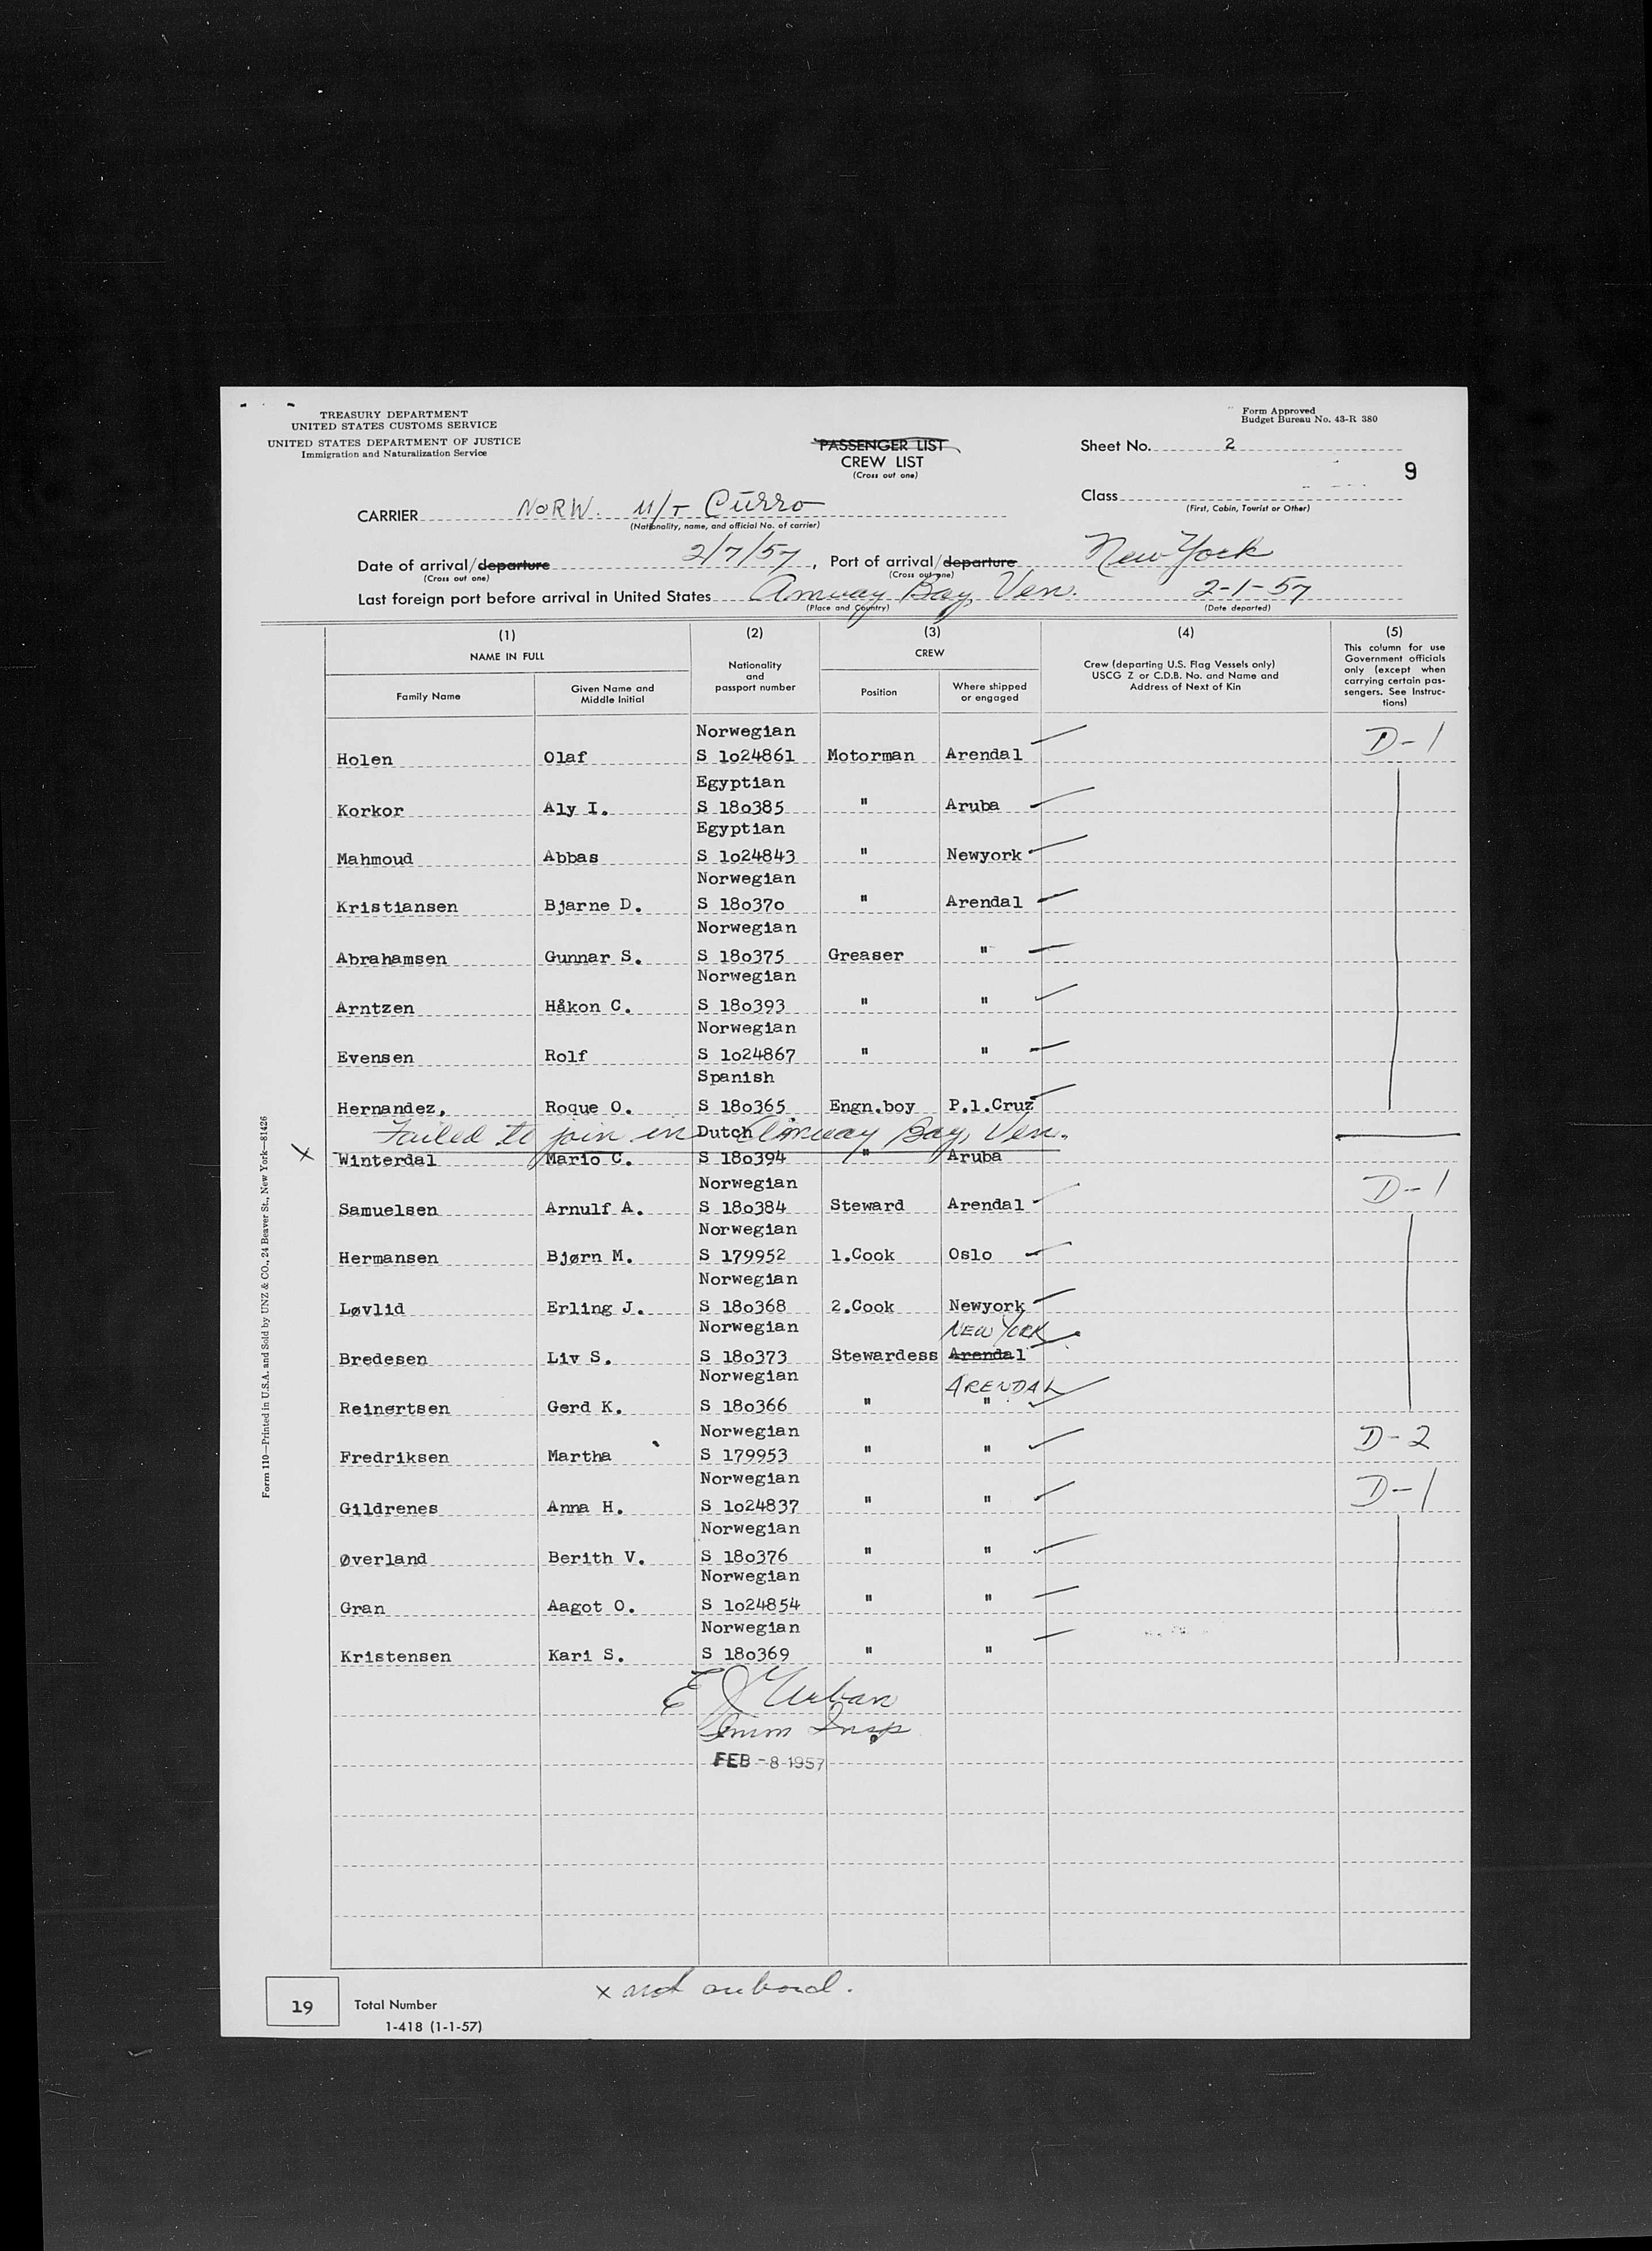 TREASURY DEPARTMENT
UNITED STATES CUSTOMS SERVICE
UNITED STATES DEPARTMENT OF JUSTICE
Immigration and Naturalization Service
PASSENGER LIST
CREW LIST
(Cross out one)
Form Approved
Budget Bureau No. 43-R 380
Sheet No. 2
9
Class
(First, Cabin, Tourist or Other)
CARRIER NORW. M/T Curro
(Nationality, name, and official No. of carrier)
Date of arrival/departure 2/7/57, Port of arrival/departure New York
(Cross out one) (Cross out one)
Last foreign port before arrival in United States Amuay Bay, Ven. 2-1-57
(Place and Country) (Date departed)
(1) (2) (3) (4) (5)
NAME IN FULL
Family Name
Given Name and Middle Initial
Nationality and passport number
CREW
Position
Where shipped or engaged
Crew (departing U.S. Flag Vessels only)
USCG Z or C.D.B. No. and Name and
Address of Next of Kin
This column for use
Government officials
only (except when
carrying certain pas-
sengers. See Instruc-
tions)
Norwegian
Holen Olaf S 1o24861 Motorman Arendal D-1
Egyptian
Korkor Aly I. S 18o385 " Aruba
Egyptian
Mahmoud Abbas S 1o24843 " Newyork
Norwegian
Kristiansen Bjarne D. S 18o37o " Arendal
Norwegian
Abrahamsen Gunnar S. S 18o375 Greaser "
Norwegian
Arntzen Håkon C. S 18o393 " "
Norwegian
Evensen Rolf S 1o24867 " "
Spanish
Hernandez, Roque O. S 18o365 Engn.boy P.l.Cruz
Failed to join in Amuay Bay, Ven.
Dutch
x Winterdal Mario C. S 18o394 " Aruba
Norwegian
Samuelsen Arnulf A. S 18o384 Steward Arendal D-1
Norwegian
Hermansen Bjørn M. S 179952 1.Cook Oslo
Norwegian
Løvlid Erling J. S 18o368 2.Cook Newyork
Norwegian NEW YORK
Bredesen Liv S. S 18o373 Stewardess Arendal
Norwegian ARENDAL
Reinertsen Gerd K. S 18o366 " "
Norwegian
Fredriksen Martha S 179953 " " D-2
Norwegian
Gildrenes Anna H. S 1o24837 " " D-1
Norwegian
Øverland Berith V. S 18o376 " "
Norwegian
Gran Aagot O. S 1o24854 " "
Norwegian
Kristensen Kari S. S 18o369 " "
E J Urban
Imm Insp
FEB -8 1957
x not onboard.
19 Total Number
1-418 (1-1-57)
Form 110—Printed in U.S.A. and Sold by UNZ & CO., 24 Beaver St., New York—81426